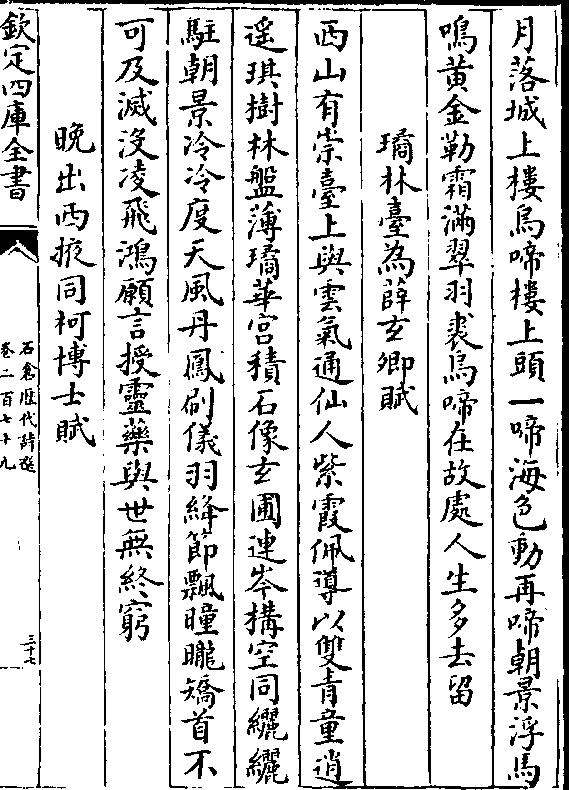 月落城上樓烏啼樓上頭一啼海色動再啼朝景浮馬
鳴黄金勒霜滿翠羽裘烏啼在故處人生多去留
璚林臺為薛玄卿賦
西山有崇臺上與雲氣通仙人紫霞佩導以雙青童逍
遥琪樹林盤薄璚華宫積石像玄圃連岑搆空同纚纚
駐朝景冷冷度天風丹鳳刷儀羽絳節飄曈曨矯首不
可及滅没凌飛鴻願言授靈藥與世無終窮
晩出西掖同柯博士賦
欽定四庫全書
石倉歴代詩選
卷二百七十九
三十七